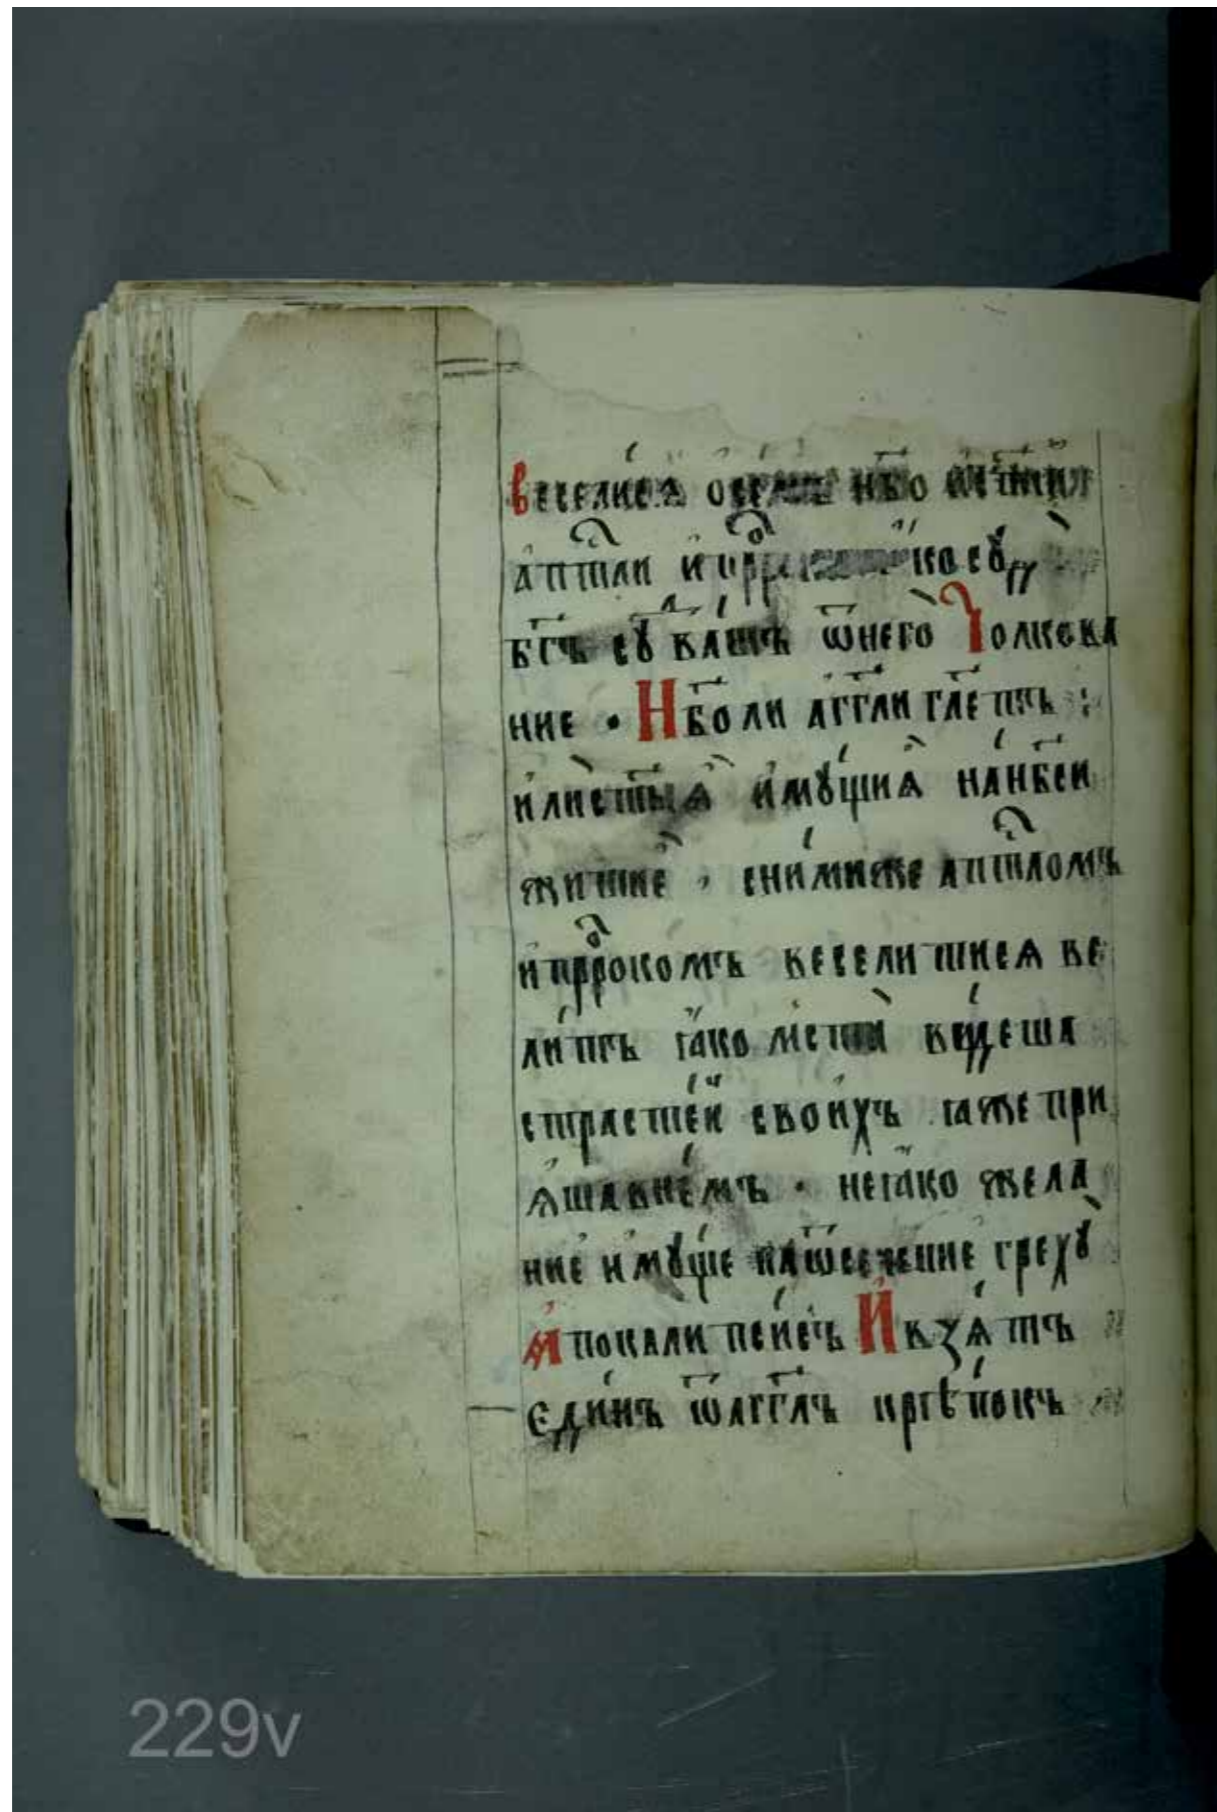 веселисѧ ѡ нб҃о
а҆пт҃ли и҆
бг҃ъ сꙋ ва́шъ ѿнего̀ Толкова
ние · Нб҃о ли агг҃ли гл҃етъ
и҆ли ст҃ыѧ и҆мꙋ́щиѧ на́нбс҃и
житие , сни́миже апт҃ломъ
и҆прⷪ҇рокомъ веселитисѧ ве
ли́тъ ꙗ҆ко ме́сти ви́деша
страсте́й свои́хъ ꙗже при
ѧ҆ша внемъ · неꙗ҆ко жела
ние и҆мꙋ́ще грехꙋ̀
А҆покалипси́съ И҆ взѧ́тъ
еди́нъ ѿагг҃лъ крѣпокъ
229v